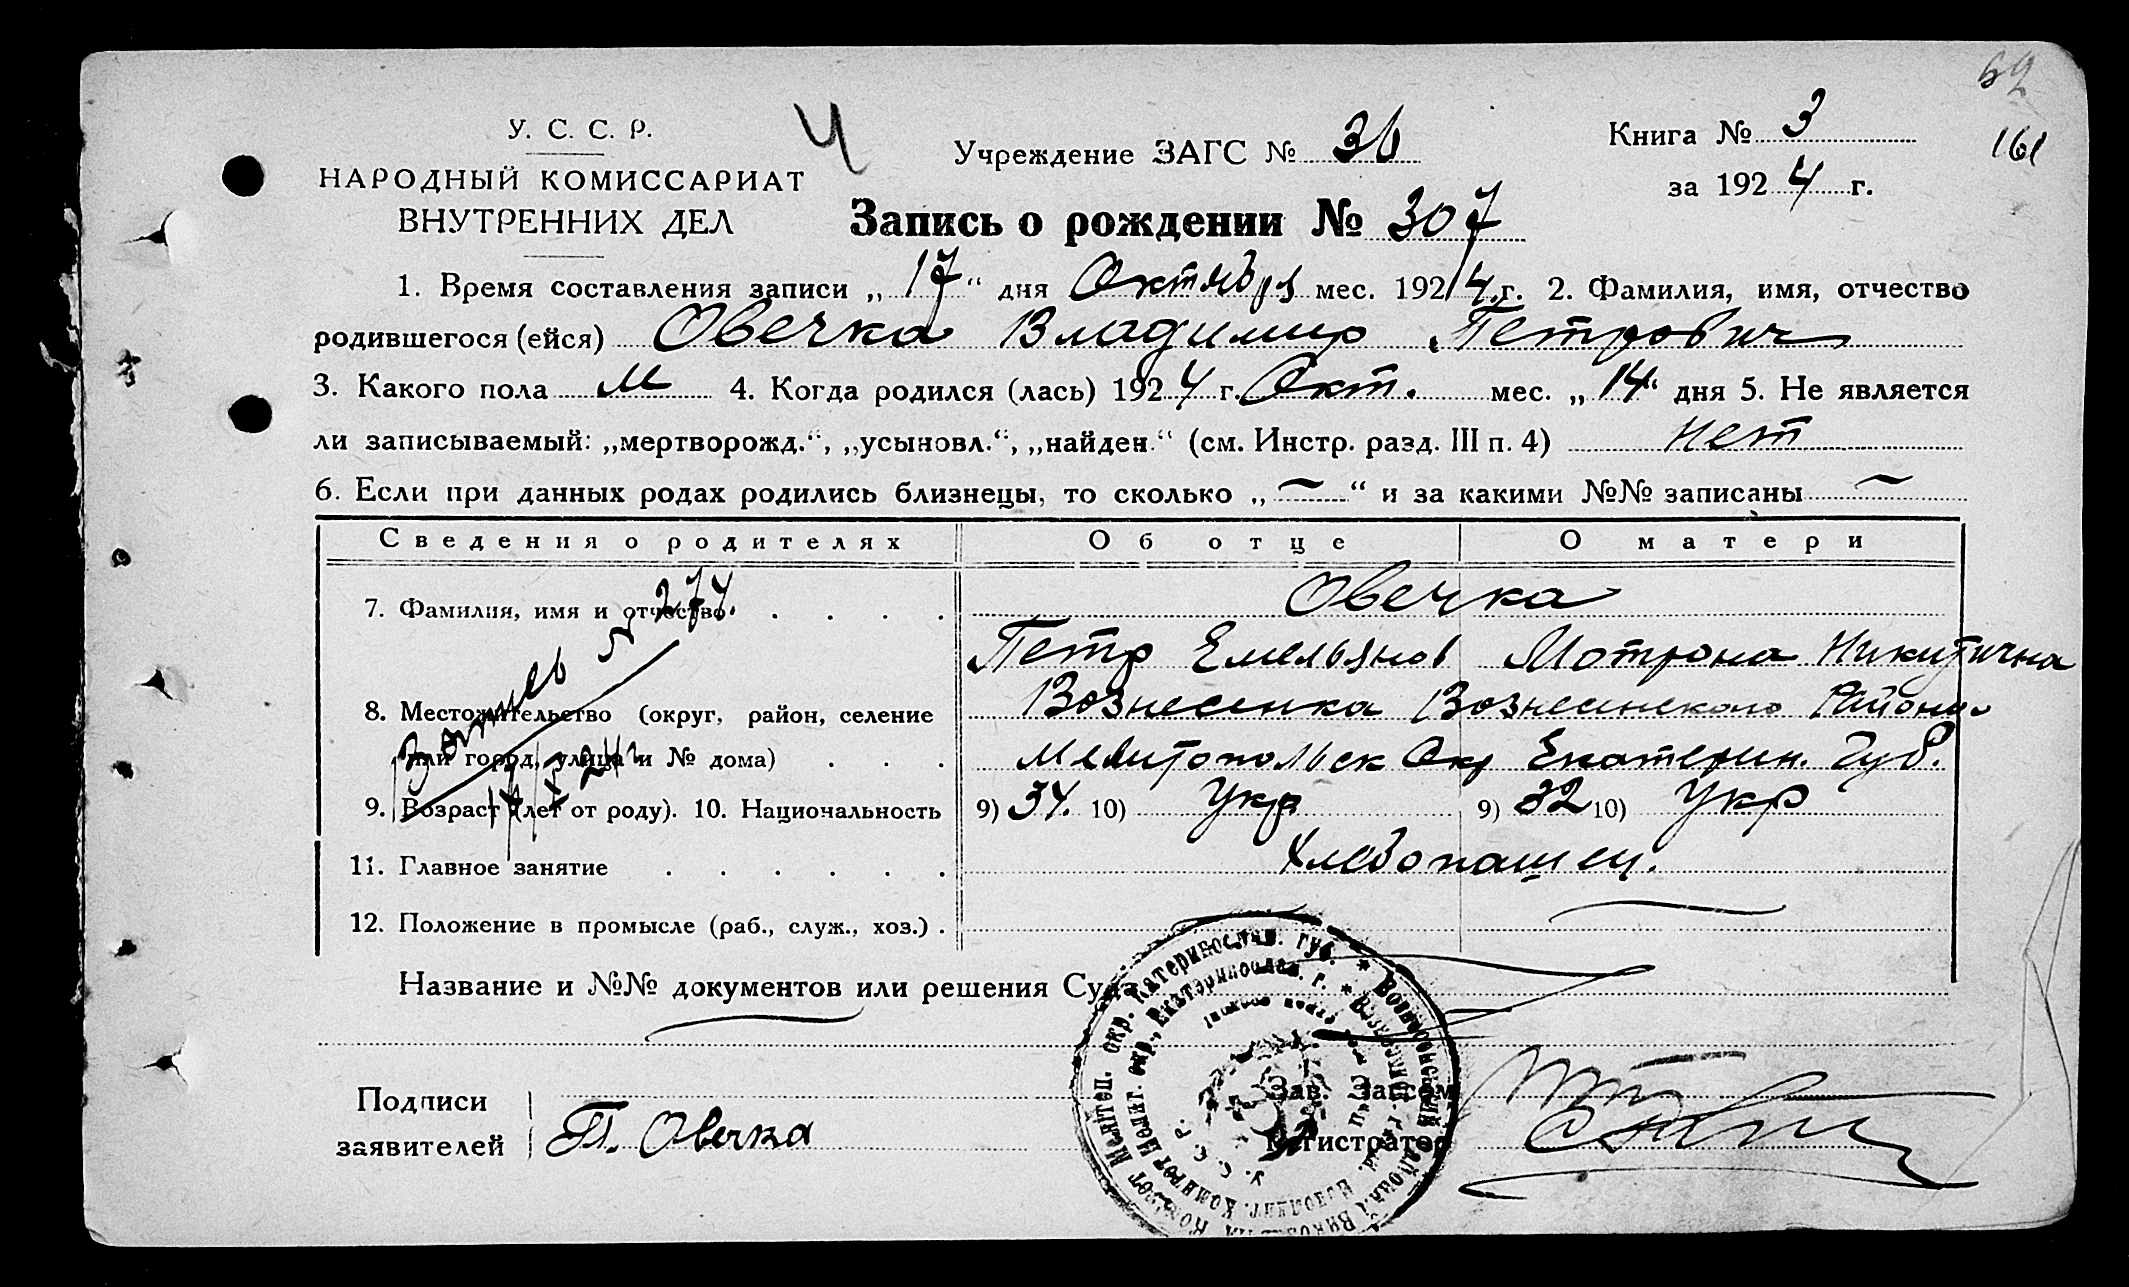 У. С. С. Р.
НАРОДНЫЙ КОМИССАРИАТ
ВНУТРЕННИХ ДЕЛ
Ч
Учреждение ЗАГС № 36
Книга № 3
за 1924 г.
161
Запись о рождении № 307
1. Время составления записи „17“ дня Октября мес. 1924 г. 2. Фамилия, имя, отчество
родившегося (ейся) Овечка Владимир Петрович
3. Какого пола м 4. Когда родился (лась) 1924 г. Окт. мес. „14“ дня 5. Не является
ли записываемый: „мертворожд.“, „усыновл.“, „найден.“ (см. Инстр. разд. III п. 4) нет
6. Если при данных родах родились близнецы, то сколько „—“ и за какими №№ записаны —
Сведения о родителях Об отце О матери
7. Фамилия, имя и отчество Овечка
Петр Емельянов Мотрона Никитична
8. Местожительство (округ, район, селение Вознесенка Вознесенского Района
или город, улица и № дома) Мелитопольск Окр Екатерин. Губ.
9. Возраст (лет от роду). 10. Национальность 9) 34. 10) Укр 9) 32 10) Укр
11. Главное занятие Хлебопашец.
12. Положение в промысле (раб., служ., хоз.)
Название и №№ документов или решения Суда
Подписи
заявителей П. Овечка
Зав. Загсом
Регистратор
У. С. С. Р.